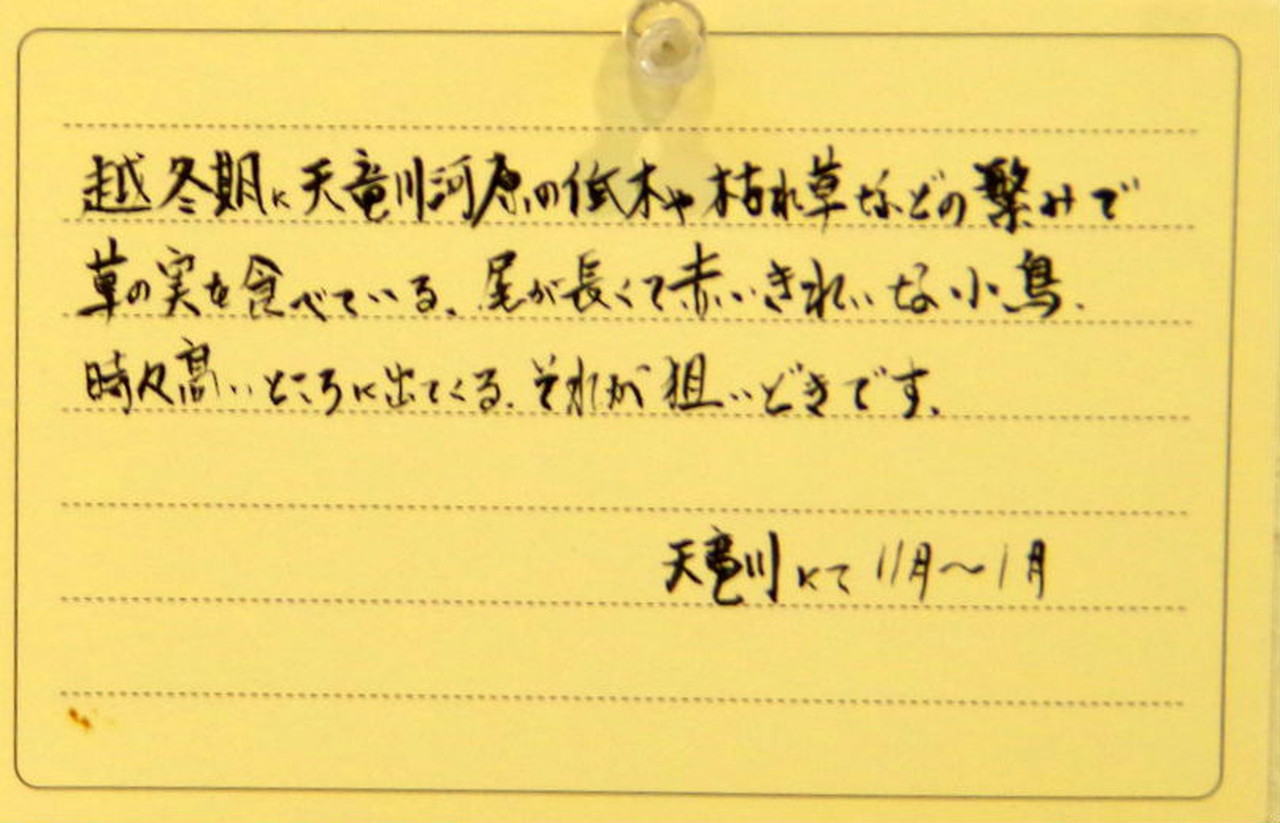 越冬期に天竜川河原の低木や枯れ草などの繁みで
草の実を食べている。尾が長くて赤いきれいな小鳥.
時々高いところに出てくる。それが狙いどきです。
天竜川にて 11月〜1月